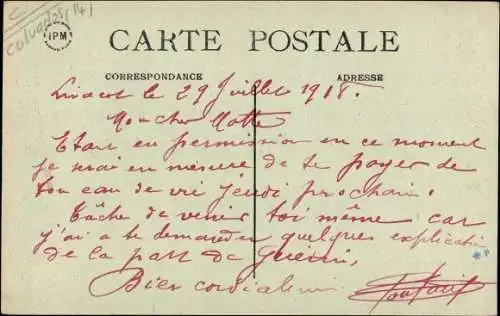 Calvados (14)
IPM
CARTE POSTALE
CORRESPONDANCE
ADRESSE
Livarot le 29 Juillet 1918.
Mon cher Motte
Etant en permission en ce moment
je serai en mesure de te payer de
ton eau de vie jeudi prochain.
Tâche de venir toi même car
j'ai a te demander quelques explication
de la part de Guerin,
Bien cordialemen